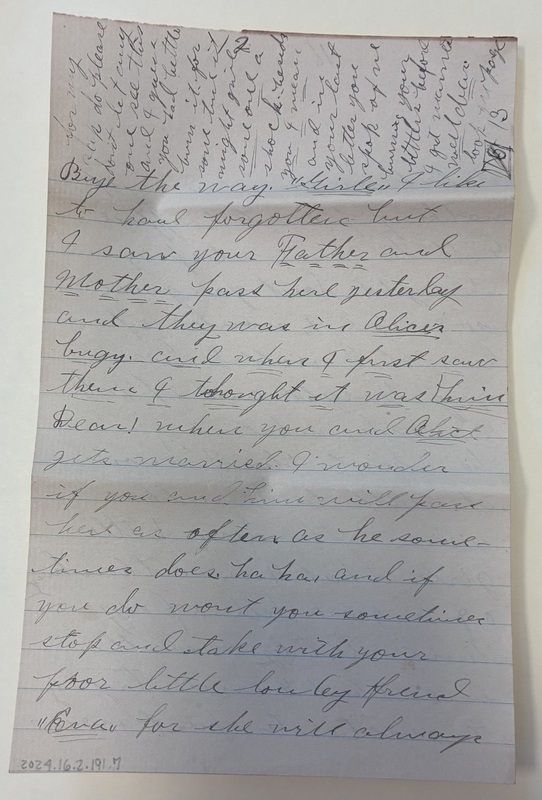 By the way. "Girlie" I like
to have forgotten but
I saw your Father and
Mother pass here yesterday
and they was in Alices
bugy. and when I first saw
them I thought it was him
Dear! when you and Alice
gets married. I wonder
if you and him will pass
here as often as he some-
times does. ha ha, and if
you do wont you sometimes
stop and take with your
poor little lonley friend
"Eva" for she will always
for my
do please
dont let any
one see this
and I guess
you had better
burn it. for
some
might
some one a
shock. heads
you I mean
and in
your last
letter you
spok of me
burning your
letters before
I got warned
well dear
look
13
2024.16.2.191.7